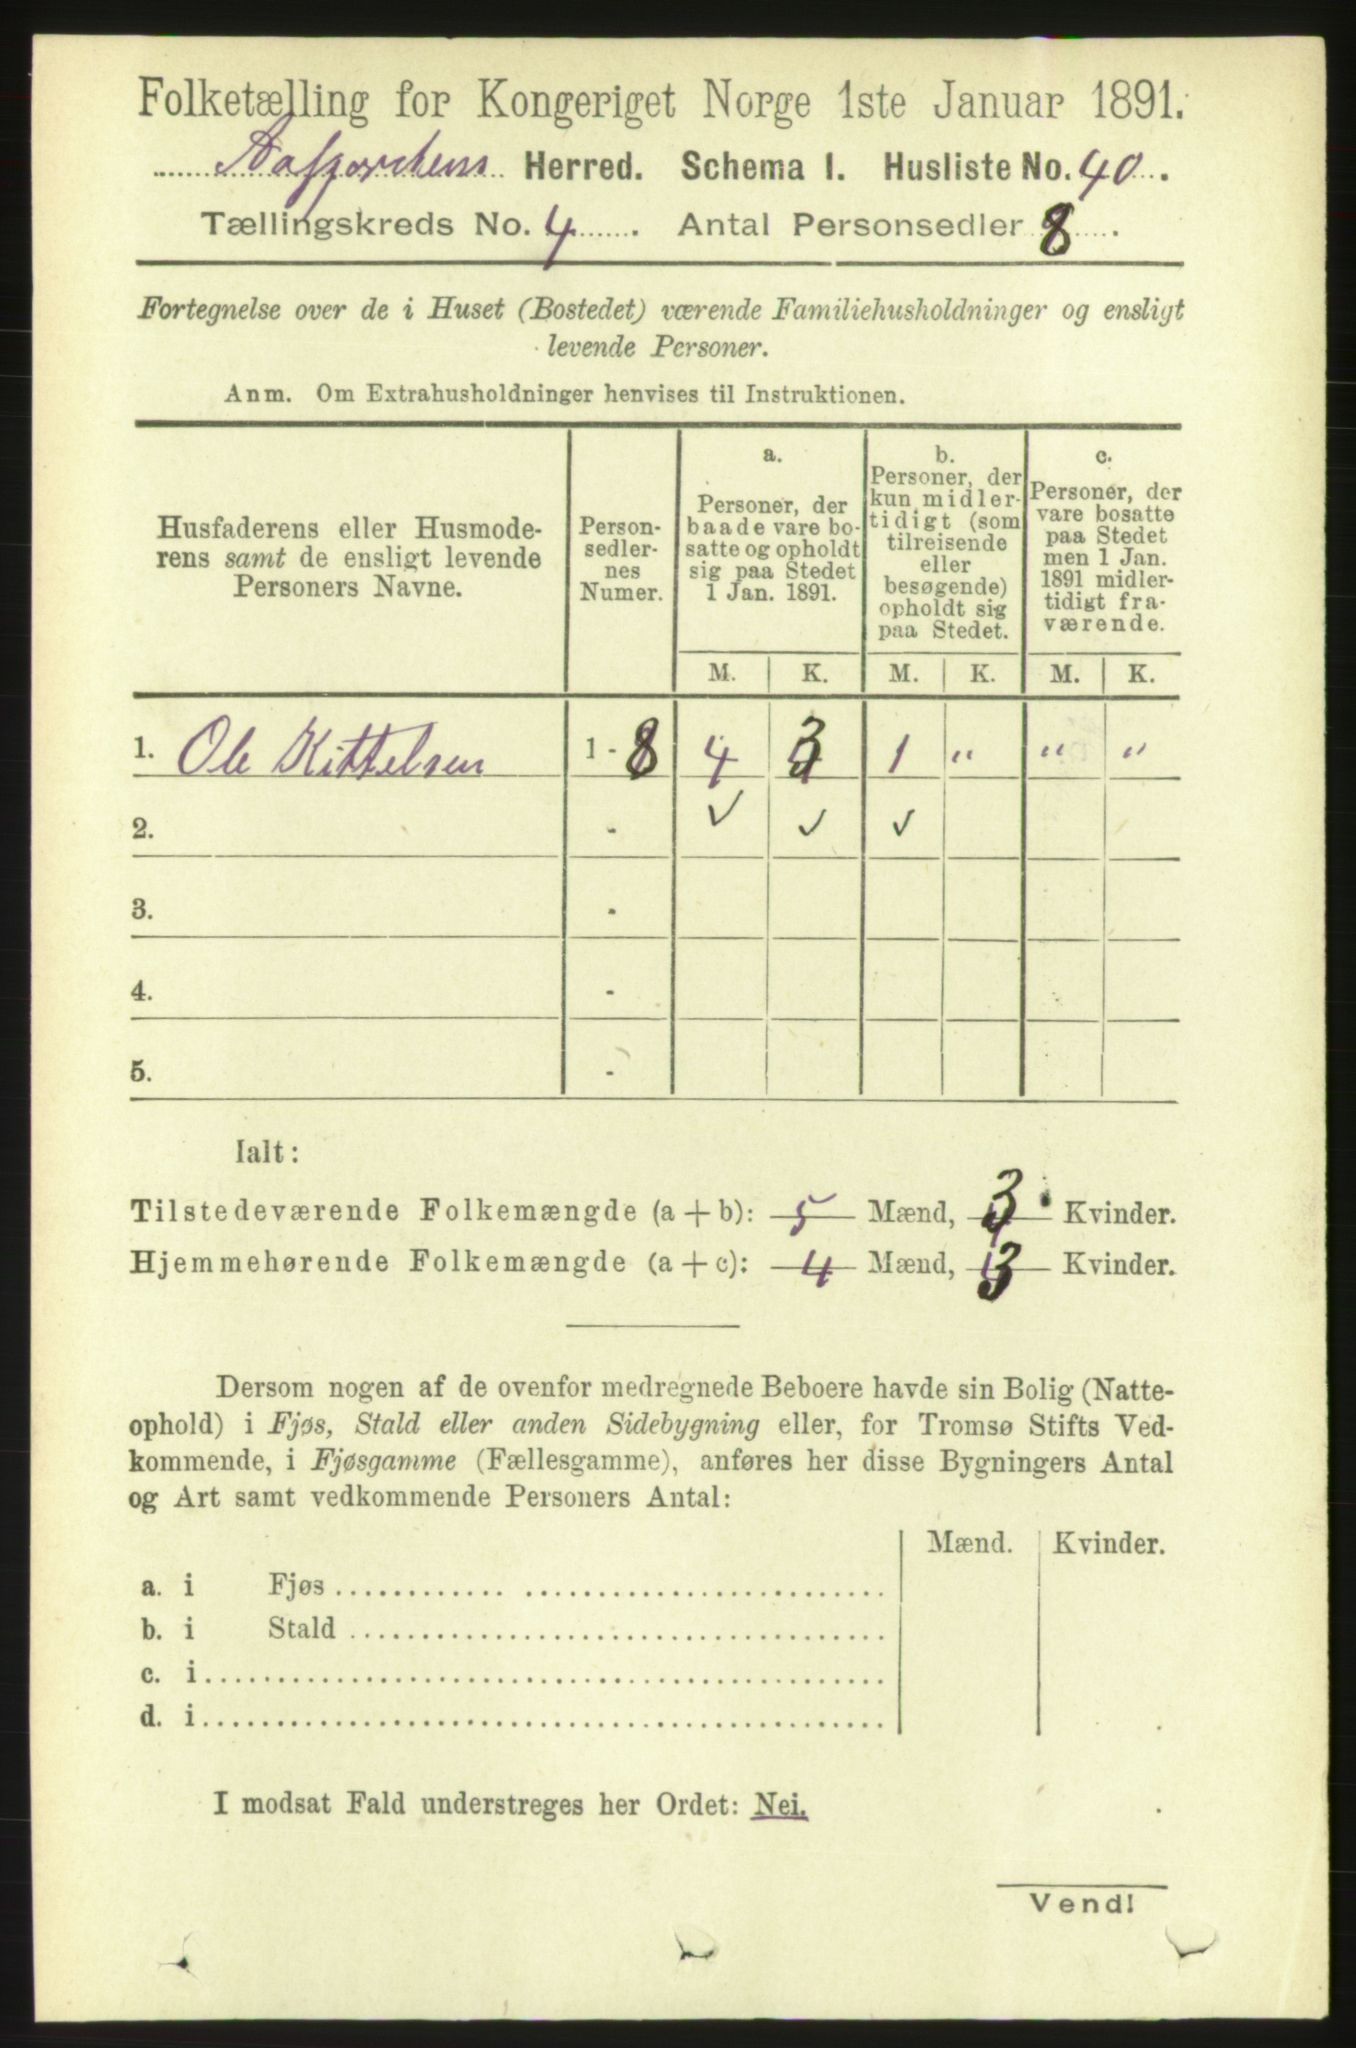 Folketælling for Kongeriget Norge 1ste Januar 1891.
Herred. Schema 1. Husliste No. 40.
Tællingskreds No. 4. Antal Personsedler 8.
Fortegnelse over de i Huset (Bostedet) værende Familiehusholdninger og ensligt
levende Personer.
Anm. Om Extrahusholdninger henvises til Instruktionen.
Husfaderens eller Husmode-
rens samt de ensligt levende
Personers Navne.
Person-
sedler-
nes
Numer.
a.
Personer, der
baade vare bo-
satte og opholdt
sig paa Stedet
1 Jan. 1891.
b.
Personer, der
kun midler-
tidigt (som
tilreisende
eller
besøgende)
opholdt sig
paa Stedet.
c.
Personer, der
vare bosatte
paa Stedet
men 1 Jan.
1891 midler-
tidigt fra-
værende.
M. K. M. K. M. K.
1. Ole Kittelsen 1 - 8 4 3 1 " " "
2. - ✓ ✓ ✓
3. -
4. -
5. -
Ialt:
Tilstedeværende Folkemængde (a + b): 5 Mænd, 3 Kvinder.
Hjemmehørende Folkemængde (a + c): 4 Mænd, 3 Kvinder.
Dersom nogen af de ovenfor medregnede Beboere havde sin Bolig (Natte-
ophold) i Fjøs, Stald eller anden Sidebygning eller, for Tromsø Stifts Ved-
kommende, i Fjøsgamme (Fællesgamme), anføres her disse Bygningers Antal
og Art samt vedkommende Personers Antal:
Mænd. Kvinder.
a. i Fjøs
b. i Stald
c. i
d. i
I modsat Fald understreges her Ordet: Nei.
Vend!